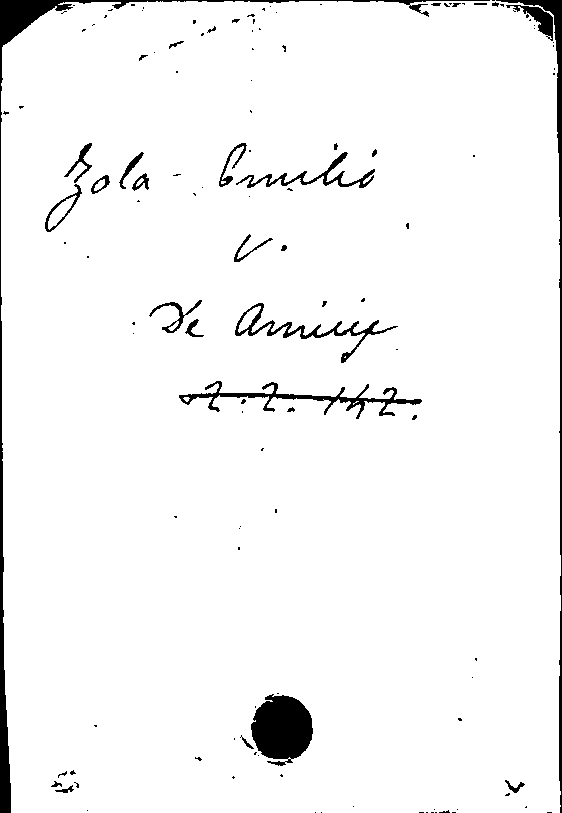 Zola - Emilio
v.
De Amicis
2. 2. 142.